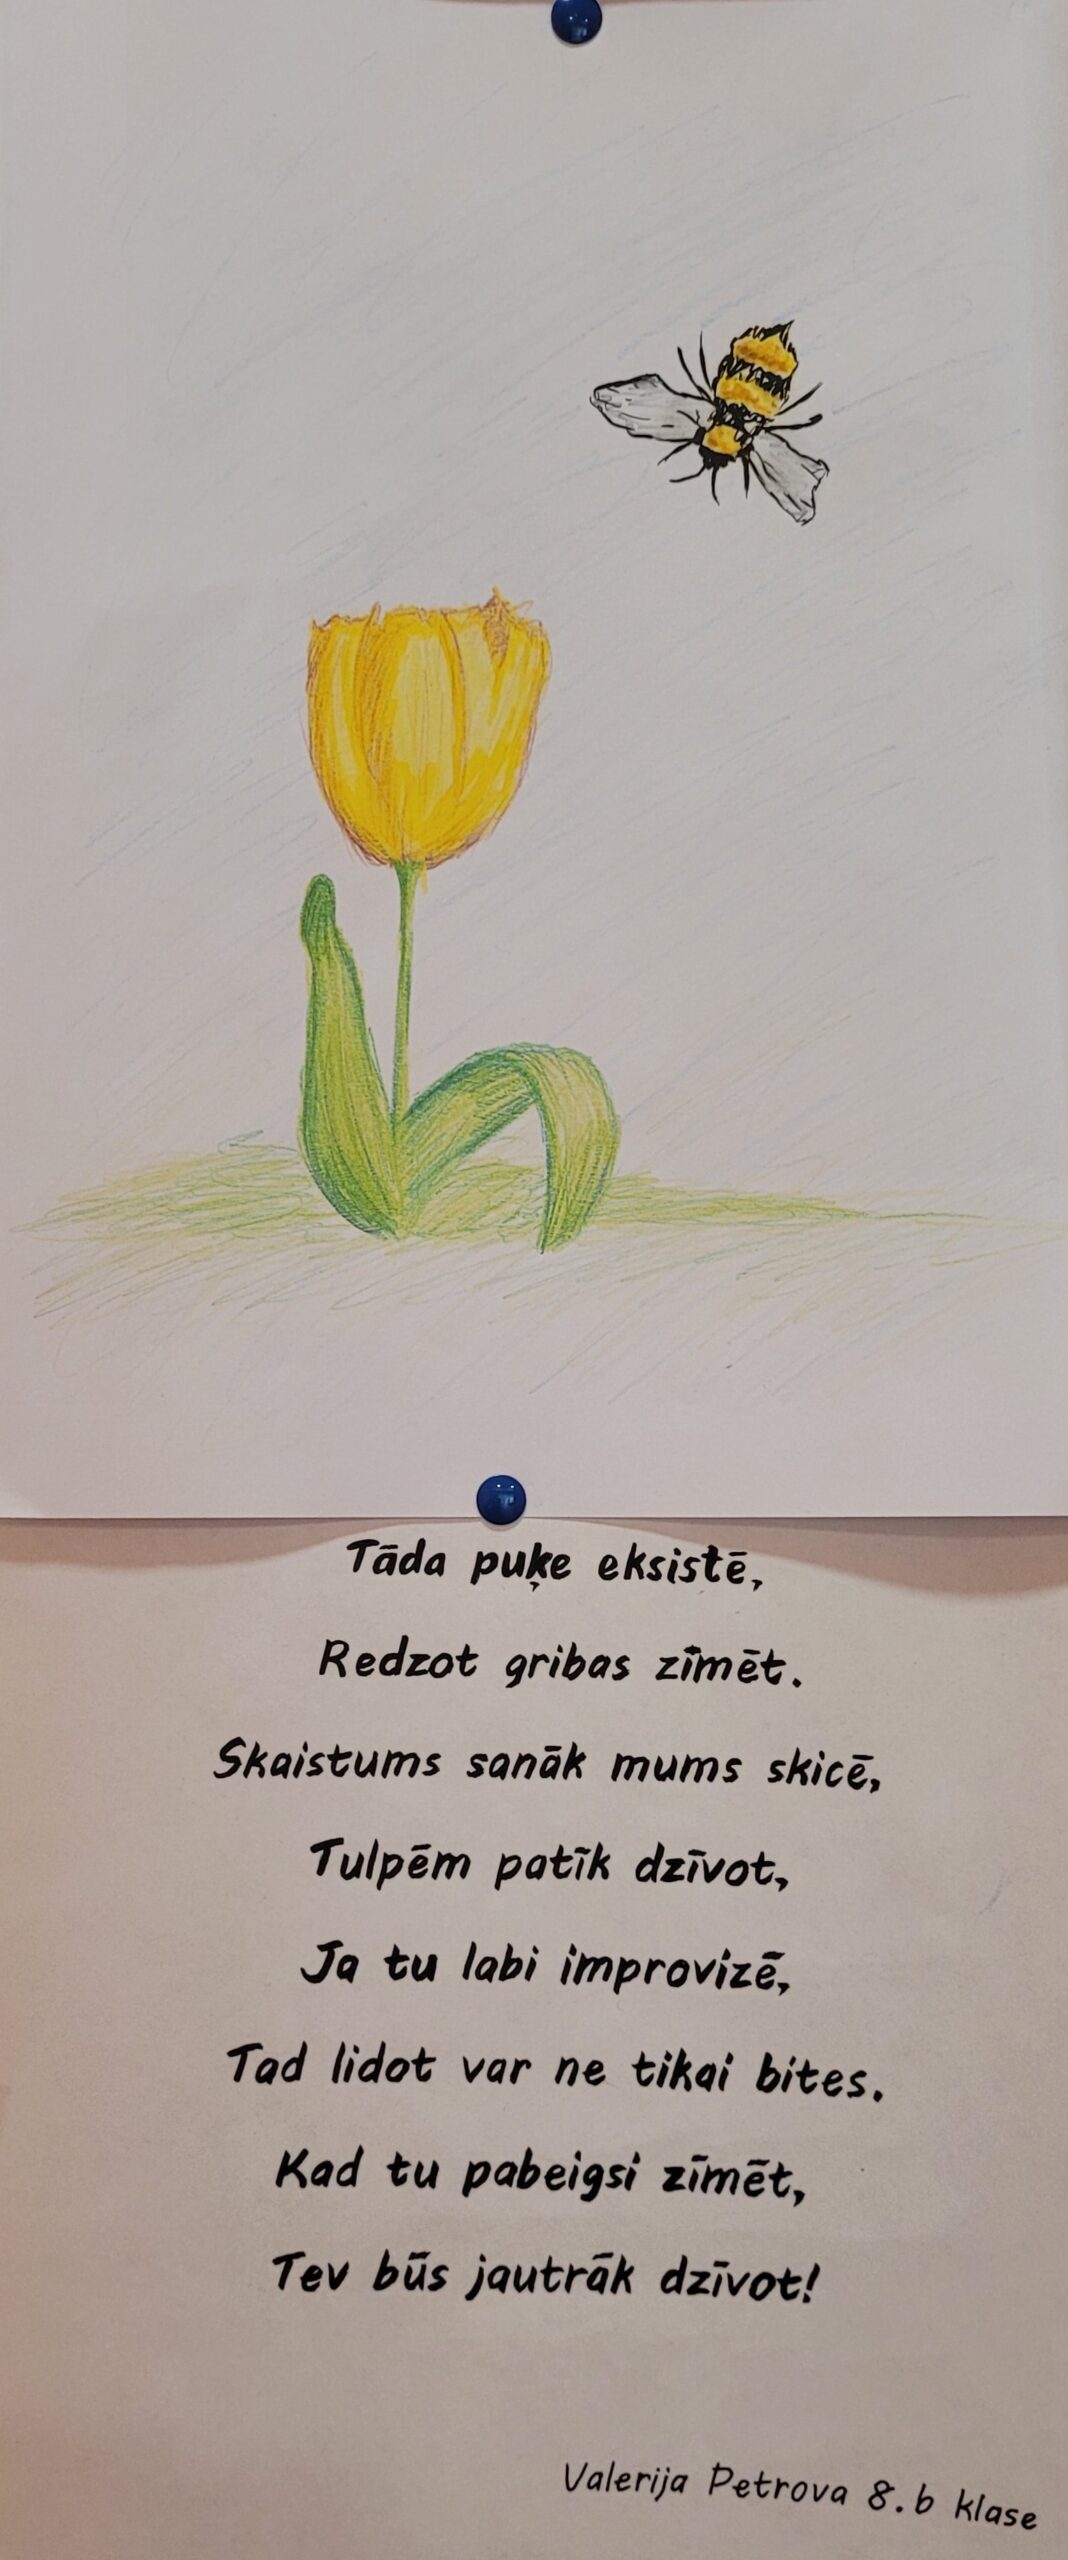 Tāda puķe eksistē,
Redzot gribas zīmēt.
Skaistums sanāk mums skicē,
Tulpēm patīk dzīvot,
Ja tu labi improvizē,
Tad lidot var ne tikai bites.
Kad tu pabeigsi zīmēt,
Tev būs jautrāk dzīvot!
Valerija Petrova 8.b klase